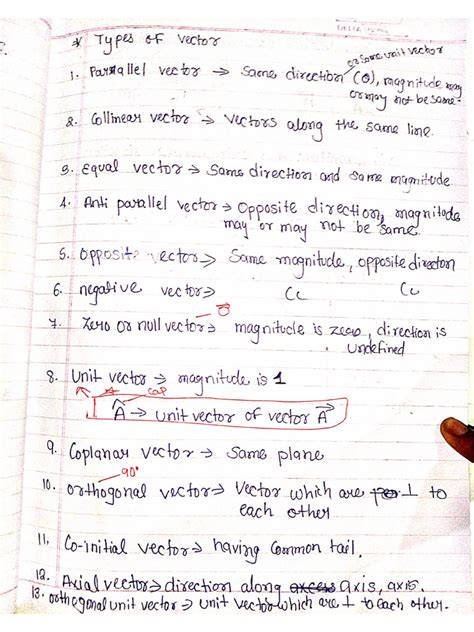 Types of vector
or same unit vector
1. Parallel vector → same direction (θ), magnitude may
or may not be same.
2. Collinear vector → Vectors along the same line.
3. Equal vector → Same direction and same magnitude.
4. Anti parallel vector → Opposite direction, magnitude
may or may not be same.
5. Opposite vector → Same magnitude, opposite direction
6. negative vector → cc cc
7. Zero or null vector → magnitude is zero, direction is
undefined
8. Unit vector → magnitude is 1
cap
Â → unit vector of vector A⃗
9. Coplanar vector → Same plane
90°
10. Orthogonal vector → Vector which are ⊥ to
each other
11. Co-initial vector → having Common tail.
12. Axial vector → direction along axis, axis.
13. orthogonal unit vector → unit vector which are ⊥ to each other.